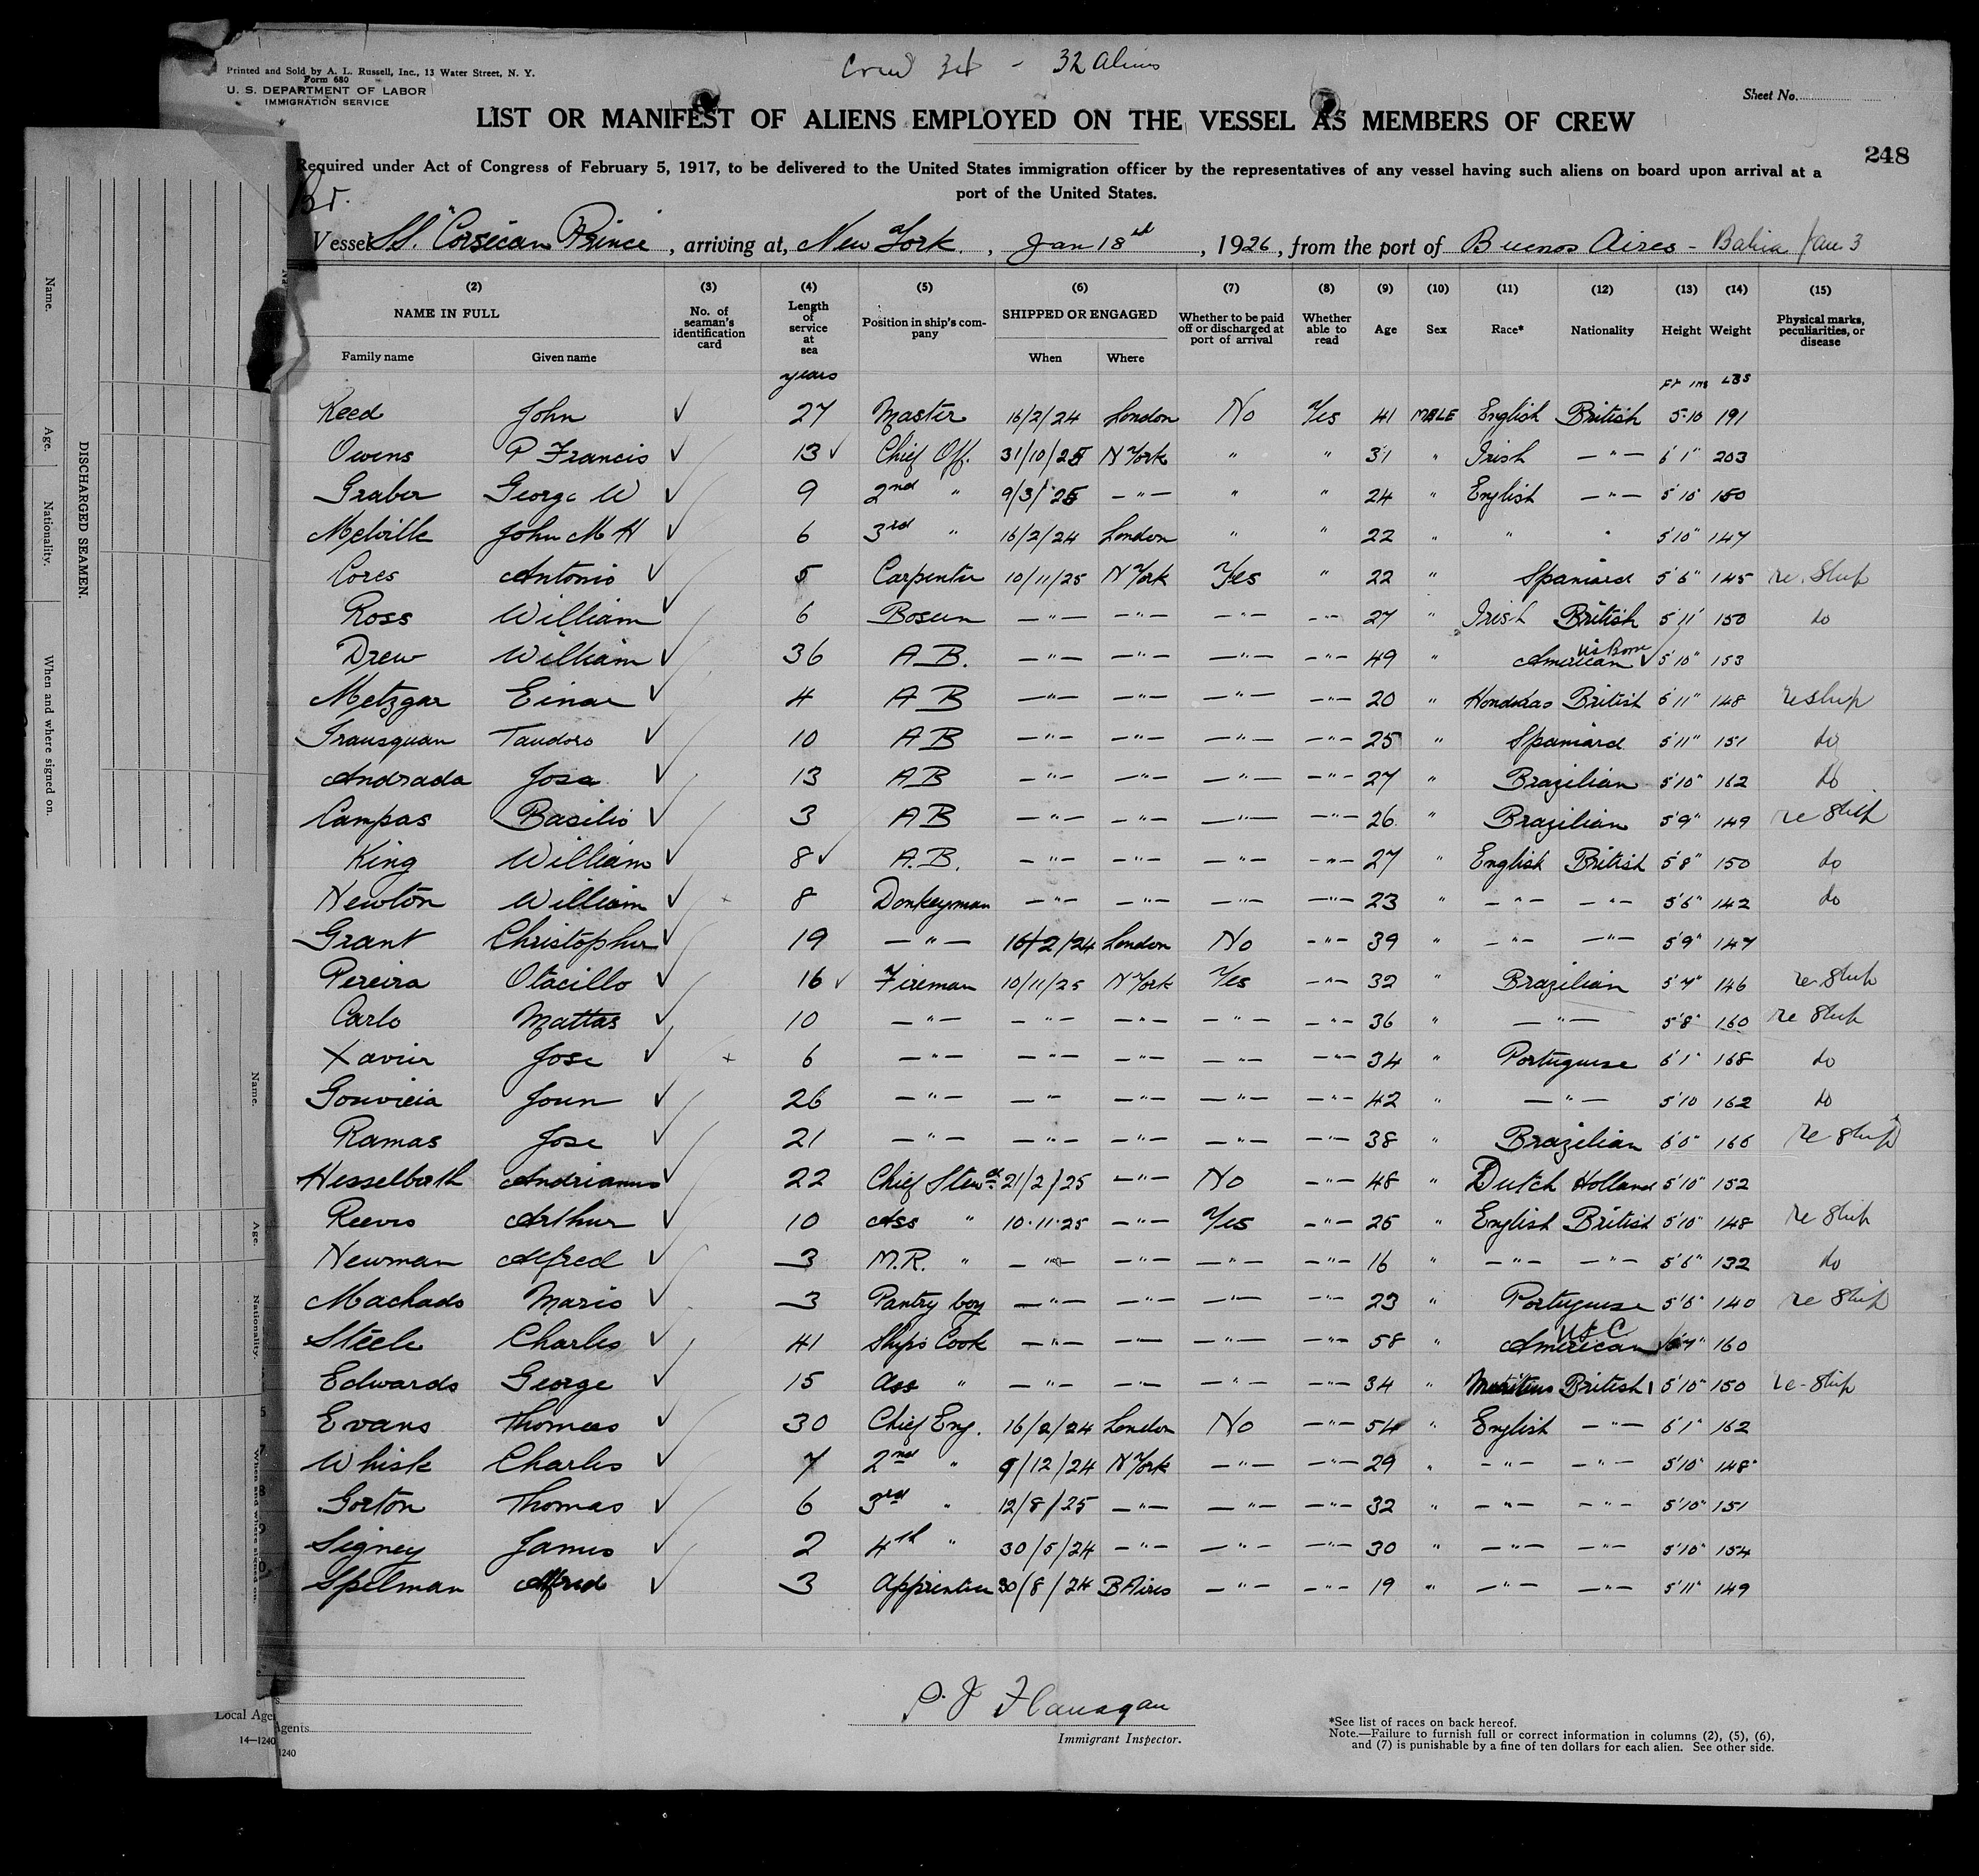 Crew 34 - 32 Aliens
Printed and Sold by A. L. Russell, Inc., 13 Water Street, N. Y.
Form 680
U. S. DEPARTMENT OF LABOR
IMMIGRATION SERVICE
Sheet No.
LIST OR MANIFEST OF ALIENS EMPLOYED ON THE VESSEL AS MEMBERS OF CREW
248
Required under Act of Congress of February 5, 1917, to be delivered to the United States immigration officer by the representatives of any vessel having such aliens on board upon arrival at a
port of the United States.
Br.
Vessel SS. "Corsican Prince, arriving at, New York, Jan 18, 1926, from the port of Buenos Aires - Bahia Jan 3
(2) (3) (4) (5) (6) (7) (8) (9) (10) (11) (12) (13) (14) (15)
NAME IN FULL No. of seaman's identification card Length of service at sea Position in ship's company SHIPPED OR ENGAGED Whether to be paid off or discharged at port of arrival Whether able to read Age Sex Race* Nationality Height Weight Physical marks, peculiarities, or disease
Family name Given name When Where
years Ft ins LBS
Reed John ✓ 27 Master 16/2/24 London No Yes 41 MALE English British 5-10 191
Owens P Francis ✓ 13 ✓ Chief Off. 31/10/25 N York " " 31 " Irish —"— 6'1" 203
Graber George W ✓ 9 2nd " 9/3/25 —"— " " 24 " English —"— 5'10" 150
Melville John M H ✓ 6 3rd " 16/2/24 London " " 22 " " " 5'10" 147
Cores Antonio ✓ 5 Carpenter 10/11/25 N York Yes " 22 " Spaniard 5'6" 145 re. Ship
Ross William ✓ 6 Bosun —"— —"— —"— —"— 27 " Irish British 5'11" 150 do
Drew William ✓ 36 A B. —"— —"— —"— —"— 49 " American US Born ✓ 5'10" 153
Metzgar Einar ✓ 4 A B —"— —"— —"— —"— 20 " Honduras British 6'11" 148 reship
Transquan Taudoro ✓ 10 A B —"— —"— —"— —"— 25 " Spaniard 5'11" 151 do
Andrada Jose ✓ 13 A B —"— —"— —"— —"— 27 " Brazilian 5'10" 162 do
Campas Basilio ✓ 3 A B —"— —"— —"— —"— 26 " Brazilian 5'9" 149 re Ship
King William ✓ 8 ✓ A.B. —"— —"— —"— —"— 27 " English British 5'8" 150 do
Newton William ✓ x 8 Donkeyman —"— —"— —"— —"— 23 " —"— —"— 5'6" 142 do
Grant Christopher ✓ 19 —"— 16/2/24 London No —"— 39 " —"— —"— 5'9" 147
Pereira Otacillo ✓ 16 ✓ Fireman 10/11/25 N York Yes —"— 32 " Brazilian 5'7" 146 re-Ship
Carlo Mattas ✓ 10 —"— —"— —"— —"— —"— 36 " —"— 5'8" 160 re Ship
Xavier Jose ✓ x 6 —"— —"— —"— —"— —"— 34 " Portuguese 6'1" 168 do
Gouvieia Joun ✓ 26 —"— —"— —"— —"— —"— 42 " —"— 5'10 162 do
Ramas Jose ✓ 21 —"— —"— —"— —"— —"— 38 " Brazilian 6'0" 166 re Ship
Hesselberth Andrianus ✓ 22 Chief Stewd 21/2/25 —"— No —"— 48 " Dutch Holland 5'10" 152
Reevs Arthur ✓ 10 Ass " 10.11.25 —"— Yes —"— 25 " English British 5'10" 148 re Ship
Newman Alfred ✓ 3 M.R. " —"— —"— —"— —"— 16 " —"— —"— 5'6" 132 do
Machado Mario ✓ 3 Pantry boy —"— —"— —"— —"— 23 " Portuguese 5'6" 140 re Ship
Steele Charles ✓ 41 Ships Cook —"— —"— —"— —"— 58 " American USC ✓ 5'7" 160
Edwards George ✓ 15 Ass " —"— —"— —"— —"— 34 " British 5'10" 150 re-Ship
Evans Thomas ✓ 30 Chief Eng. 16/2/24 London No —"— 54 " English —"— 6'1" 162
Whisk Charles ✓ 7 2nd " 9/12/24 N York —"— —"— 29 " —"— —"— 5'10" 148
Gorton Thomas ✓ 6 3rd " 12/8/25 —"— —"— —"— 32 " —"— —"— 5'10" 151
Signey James ✓ 2 4th " 30/5/24 —"— —"— —"— 30 " —"— —"— 5'10" 154
Spelman Alfred ✓ 3 Apprentice 30/8/24 B Aires —"— —"— 19 " —"— —"— 5'11" 149
P. J Flanagan
Immigrant Inspector.
*See list of races on back hereof.
Note.—Failure to furnish full or correct information in columns (2), (5), (6),
and (7) is punishable by a fine of ten dollars for each alien. See other side.
DISCHARGED SEAMEN.
Name.
Age.
Nationality.
When and where signed on.
Name.
Age.
Nationality.
When and where signed on.
Local Agents
Agents
14—1240
1240